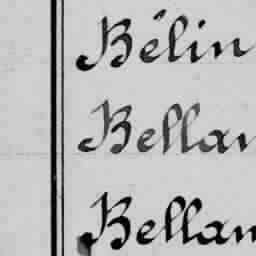 Bélin
Bellan
Bellan